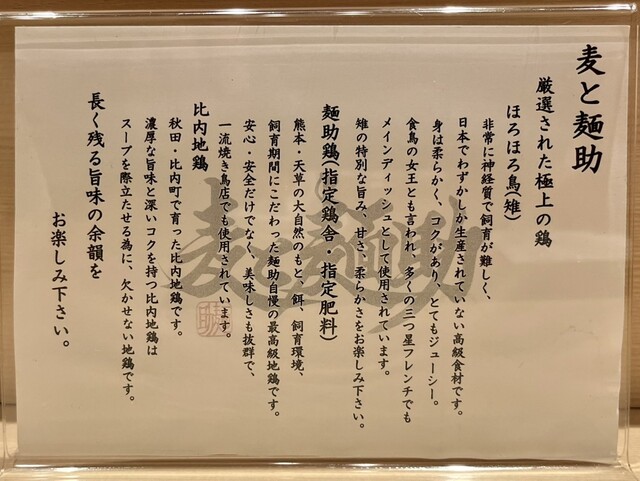 麦と麺助
厳選された極上の鶏
ほろほろ鳥(雉)
非常に神経質で飼育が難しく、
日本でわずかしか生産されていない高級食材です。
身は柔らかく、コクがあり、とてもジューシー。
食鳥の女王とも言われ、多くの三つ星フレンチでも
メインディッシュとして使用されています。
雉の特別な旨み、甘さ、柔らかさをお楽しみ下さい。
麺助鶏(指定鶏舎・指定肥料)
熊本・天草の大自然のもと、餌、飼育環境、
飼育期間にこだわった麺助自慢の最高級地鶏です。
安心・安全だけでなく、美味しさも抜群で、
一流焼き鳥店でも使用されています。
比内地鶏
秋田・比内町で育った比内地鶏です。
濃厚な旨味と深いコクを持つ比内地鶏は
スープを際立たせる為に、欠かせない地鶏です。
長く残る旨味の余韻を
お楽しみ下さい。
麦と麺助
助